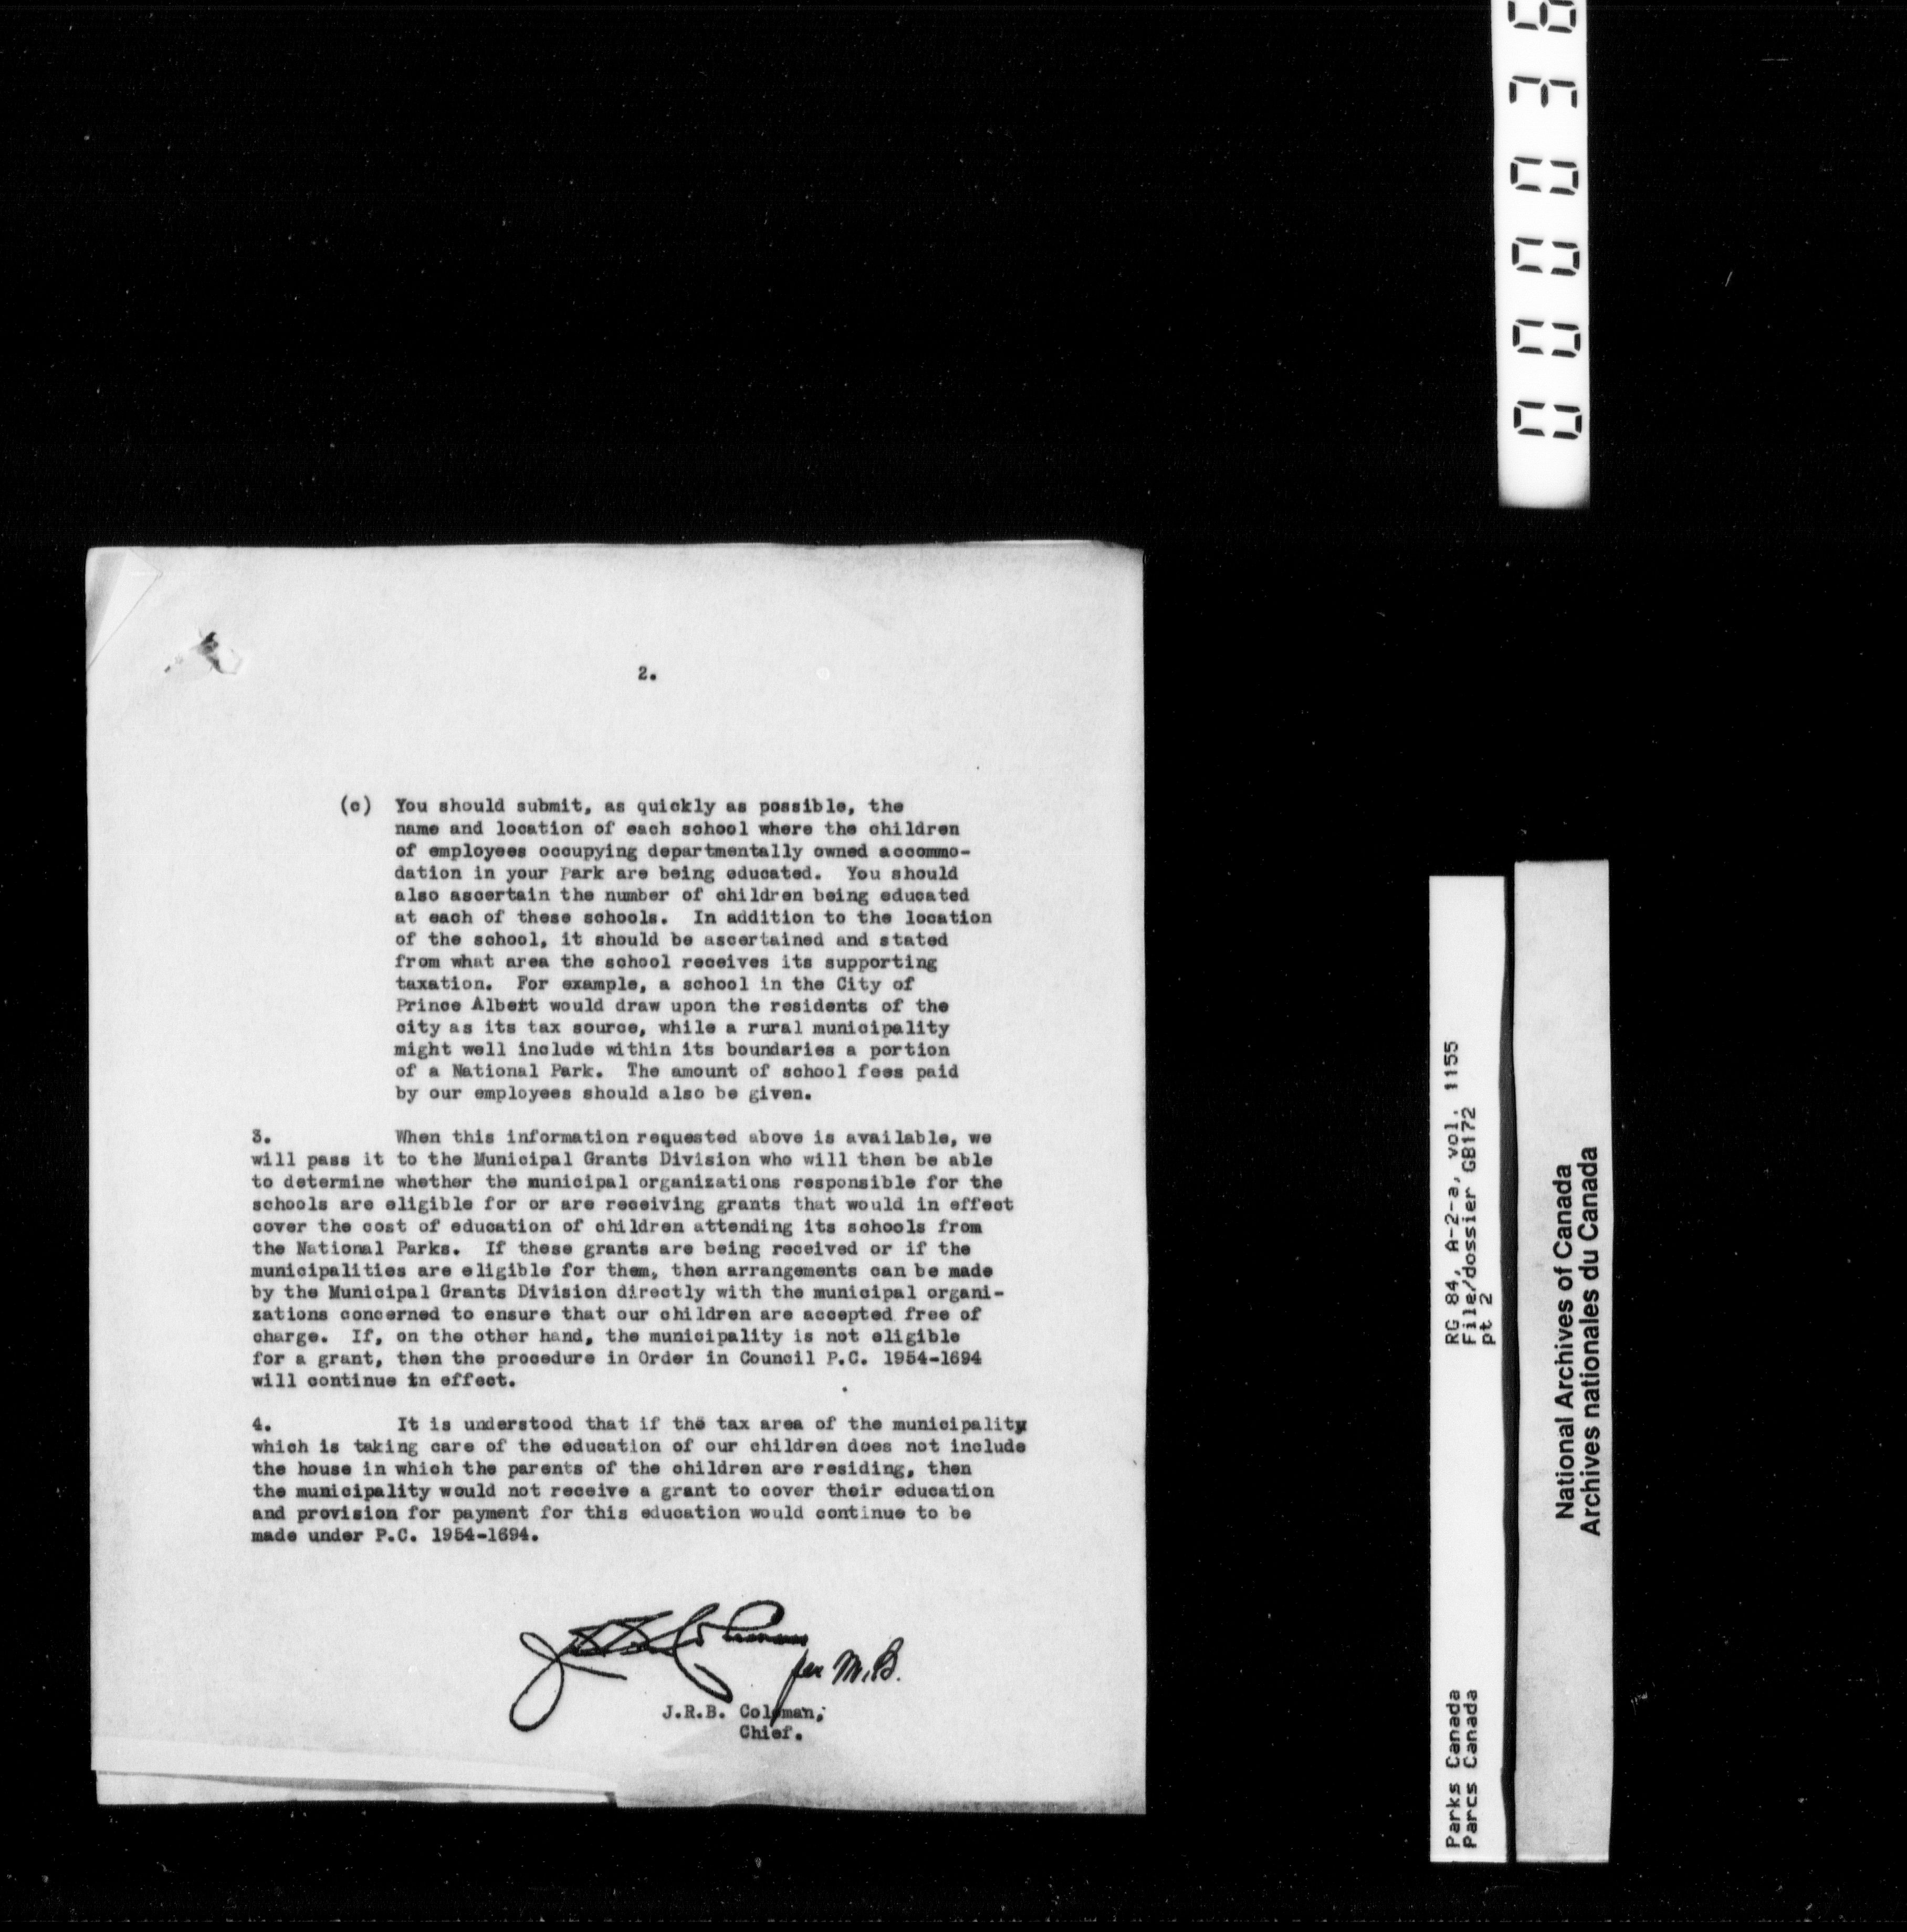 2.
(c) You should submit, as quickly as possible, the
name and location of each school where the children
of employees occupying departmentally owned accommo-
dation in your Park are being educated. You should
also ascertain the number of children being educated
at each of these schools. In addition to the location
of the school, it should be ascertained and stated
from what area the school receives its supporting
taxation. For example, a school in the City of
Prince Albert would draw upon the residents of the
city as its tax source, while a rural municipality
might well include within its boundaries a portion
of a National Park. The amount of school fees paid
by our employees should also be given.
3. When this information requested above is available, we
will pass it to the Municipal Grants Division who will then be able
to determine whether the municipal organizations responsible for the
schools are eligible for or are receiving grants that would in effect
cover the cost of education of children attending its schools from
the National Parks. If these grants are being received or if the
municipalities are eligible for them, then arrangements can be made
by the Municipal Grants Division directly with the municipal organi-
zations concerned to ensure that our children are accepted free of
charge. If, on the other hand, the municipality is not eligible
for a grant, then the procedure in Order in Council P.C. 1954-1694
will continue in effect.
4. It is understood that if the tax area of the municipality
which is taking care of the education of our children does not include
the house in which the parents of the children are residing, then
the municipality would not receive a grant to cover their education
and provision for payment for this education would continue to be
made under P.C. 1954-1694.
per M.B.
J.R.B. Coleman,
Chief.
Parks Canada RG 84, A-2-a, vol. 1155
Parcs Canada File/dossier GB172
pt 2
National Archives of Canada
Archives nationales du Canada